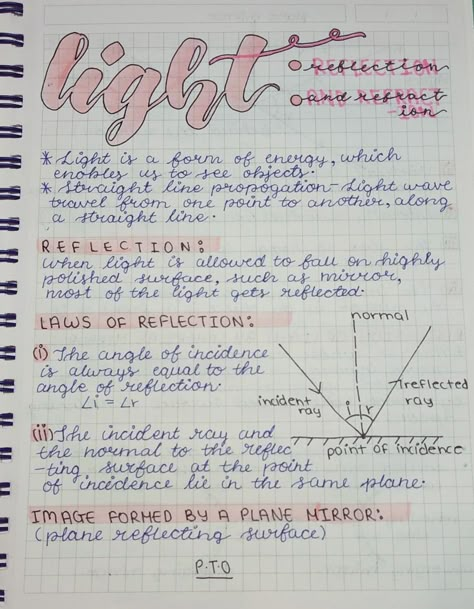 light
REFLECTION
reflection
AND REFRACT
-ION
and refract
ion
* Light is a form of energy, which
enables us to see objects.
* Straight line propogation - Light wave
travel from one point to another, along
a straight line.
REFLECTION:
When light is allowed to fall on highly
polished surface, such as mirror,
most of the light gets reflected.
LAWS OF REFLECTION:
(i) The angle of incidence
is always equal to the
angle of reflection.
∠i = ∠r
normal
incident
ray
i
r
reflected
ray
point of incidence
(ii) The incident ray and
the normal to the reflec
-ting surface at the point
of incidence lie in the same plane.
IMAGE FORMED BY A PLANE MIRROR:
(plane reflecting surface)
P.T.O